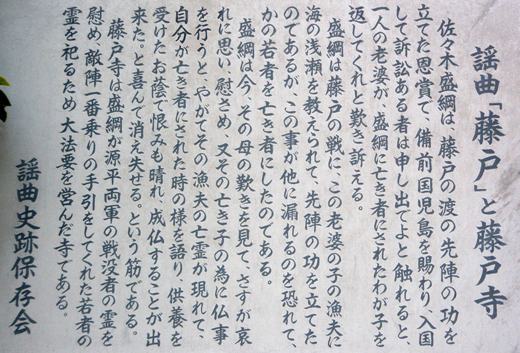 謡曲「藤戸」と藤戸寺
佐々木盛綱は、藤戸の渡の先陣の功を
立てた恩賞で、備前国児島を賜わり、入国
して訴訟ある者は申し出てよと触れると、
一人の老婆が、盛綱に亡き者にされたわが子を
返してくれと歎き訴える。
盛綱は藤戸の戦に、この老婆の子の漁夫に
海の浅瀬を教えられて、先陣の功を立てた
のであるが、この事が他に漏れるのを恐れて、
かの若者を亡き者にしたのである。
盛綱は今、その母の歎きを見て、さすが哀
れに思い、慰さめ、又その亡き子の為に仏事
を行うと、やがてその漁夫の亡霊が現れて、
自分が亡き者にされた時の様を語り、供養を
受けたお蔭で恨みも晴れ、成仏することが出
来た。と喜んで消え失せる。という筋である。
藤戸寺は盛綱が源平両軍の戦没者の霊を
慰め、敵陣一番乗りの手引をしてくれた若者の
霊を祀るため大法要を営んだ寺である。
謡曲史跡保存会